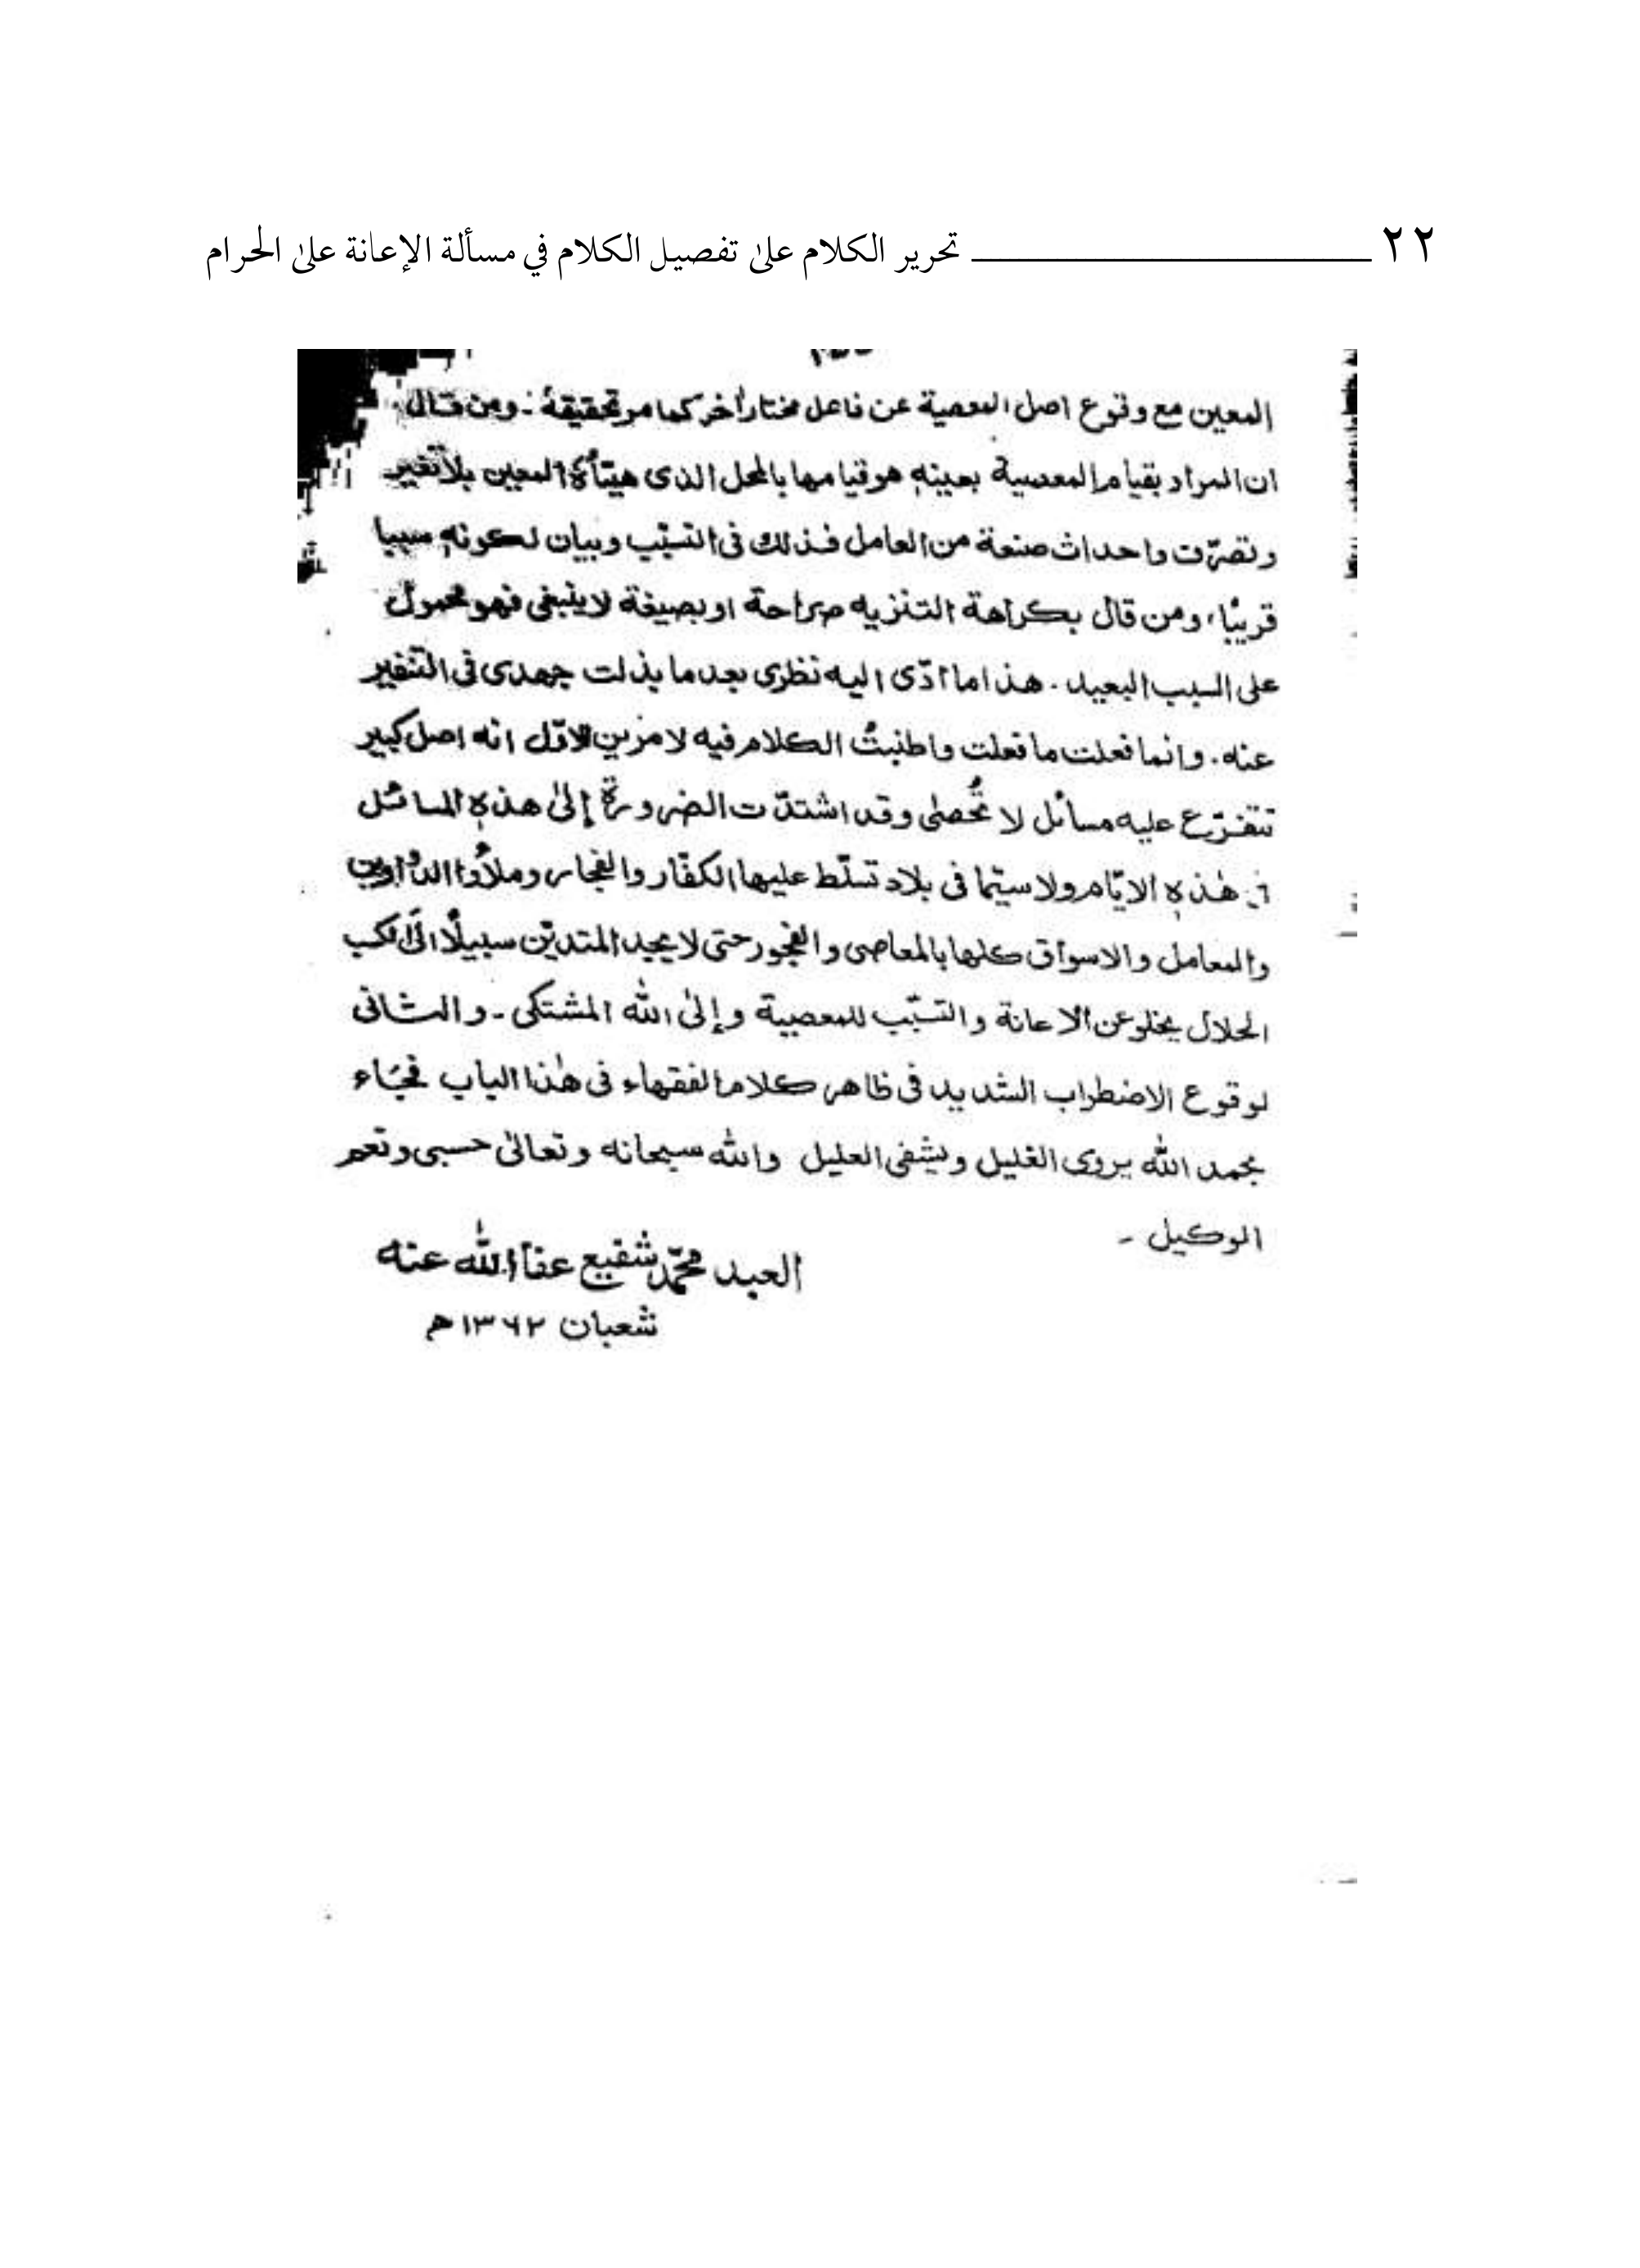 ٢٢ تحرير الكلام على تفصيل الكلام في مسألة الإعانة على الحرام
المعين مع وقوع اصل المعصية عن فاعل مختار أخر كما مر تحقيقهٗ. ومن قال
ان المراد بقيام المعصية بعينهٖ هو قيامها بالمحل الذى هيّأهٗ المعين بلا تغير
وتصرّف واحداث صنعة من العامل فذلك فى التسبّب وبيان لكونهٖ سببا
قريبًا، ومن قال بكراهة التنزيه صراحة او بصيغة لا ينبغى فهو محمول
على السبب البعيد. هذا ما ادّى اليه نظرى بعد ما بذلت جهدى فى التنقير
عنه. وانما فعلت ما فعلت واطنبتُ الكلام فيه لامرين الاوّل انه اصل كبير
تتفرّع عليه مسائل لا تُحصٰى وقد اشتدّت الضرورة إلىٰ هذهٖ المسائل
فى هٰذهٖ الايّام ولا سيّما فى بلاد تسلّط عليها الكفّار والفجار وملأُوا الدواوين
والمعامل والاسواق كلها بالمعاصى والفجور حتى لا يجد المتديّن سبيلًا الىٰ كسب
الحلال يخلو عن الاعانة والتسبّب للمعصية وإلىٰ اللّٰه المشتكى۔ والثانى
لوقوع الاضطراب الشديد فى ظاهر كلام الفقهاء فى هٰذا الباب فجَاء
بحمد اللّٰه يروى الغليل ويشفى العليل واللّٰه سبحانه وتعالىٰ حسبى ونعم
الوكيل۔
العبد محمّد شفيع عفا اللّٰه عنه
شعبان ١٣٦٢ھ